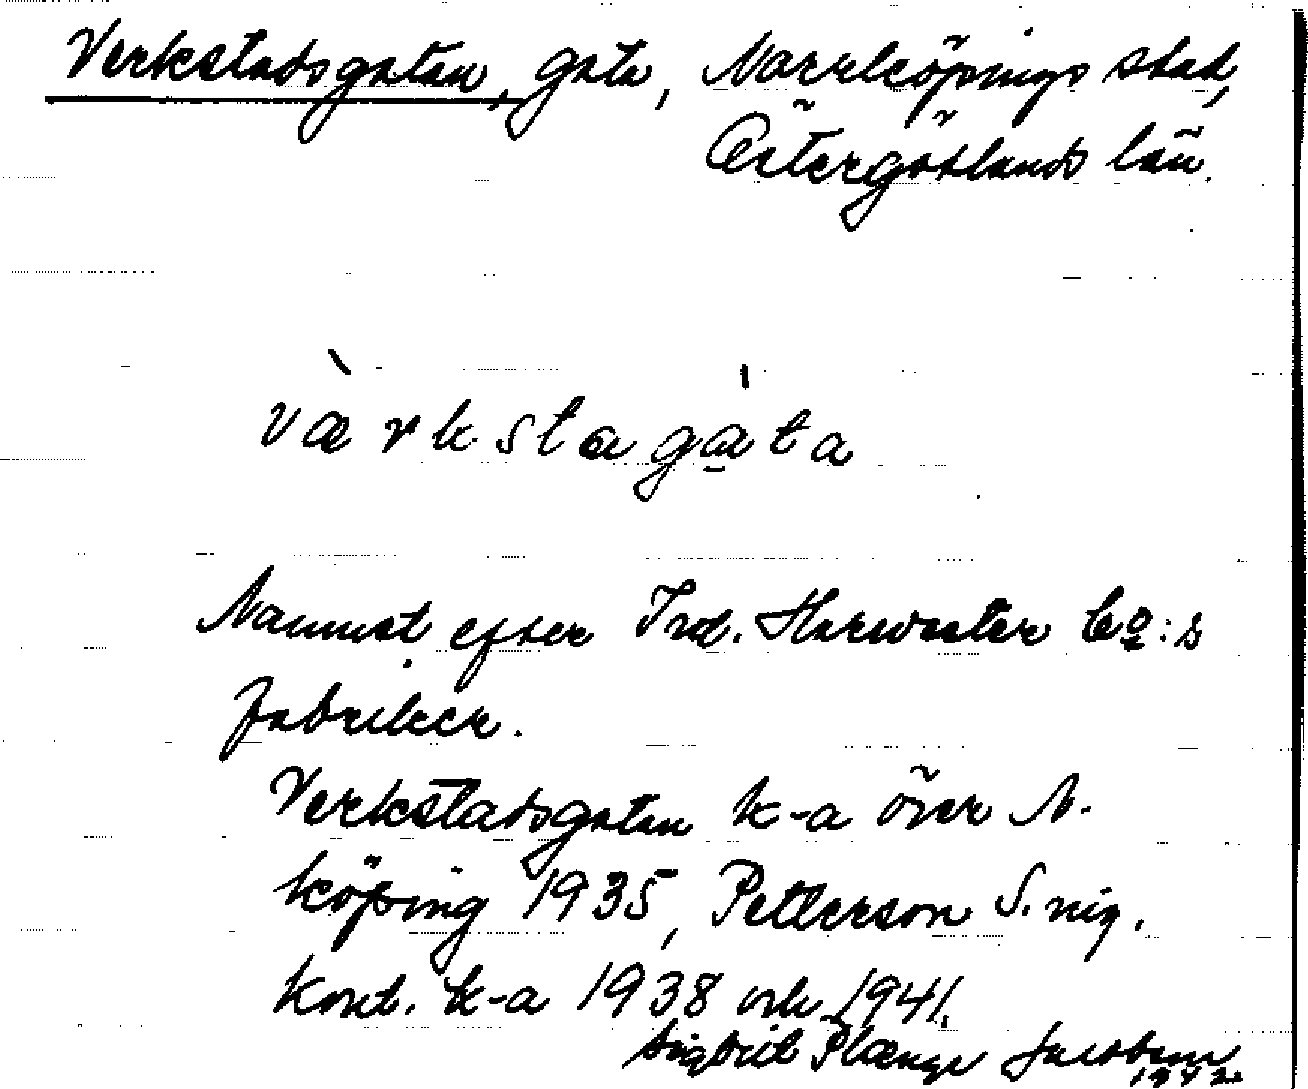 Verkstadsgatan, gata, Norrköpings stad,
Östergötlands län.
værkstagata
Namnet efter Ind. Harwester Co:s
fabriker.
Verkstadsgatan k-a över N.
köping 1935, Petterson S. nig.
Kont. k-a 1938 och 1941.
Sigbrit Plænge Jacobson
1942